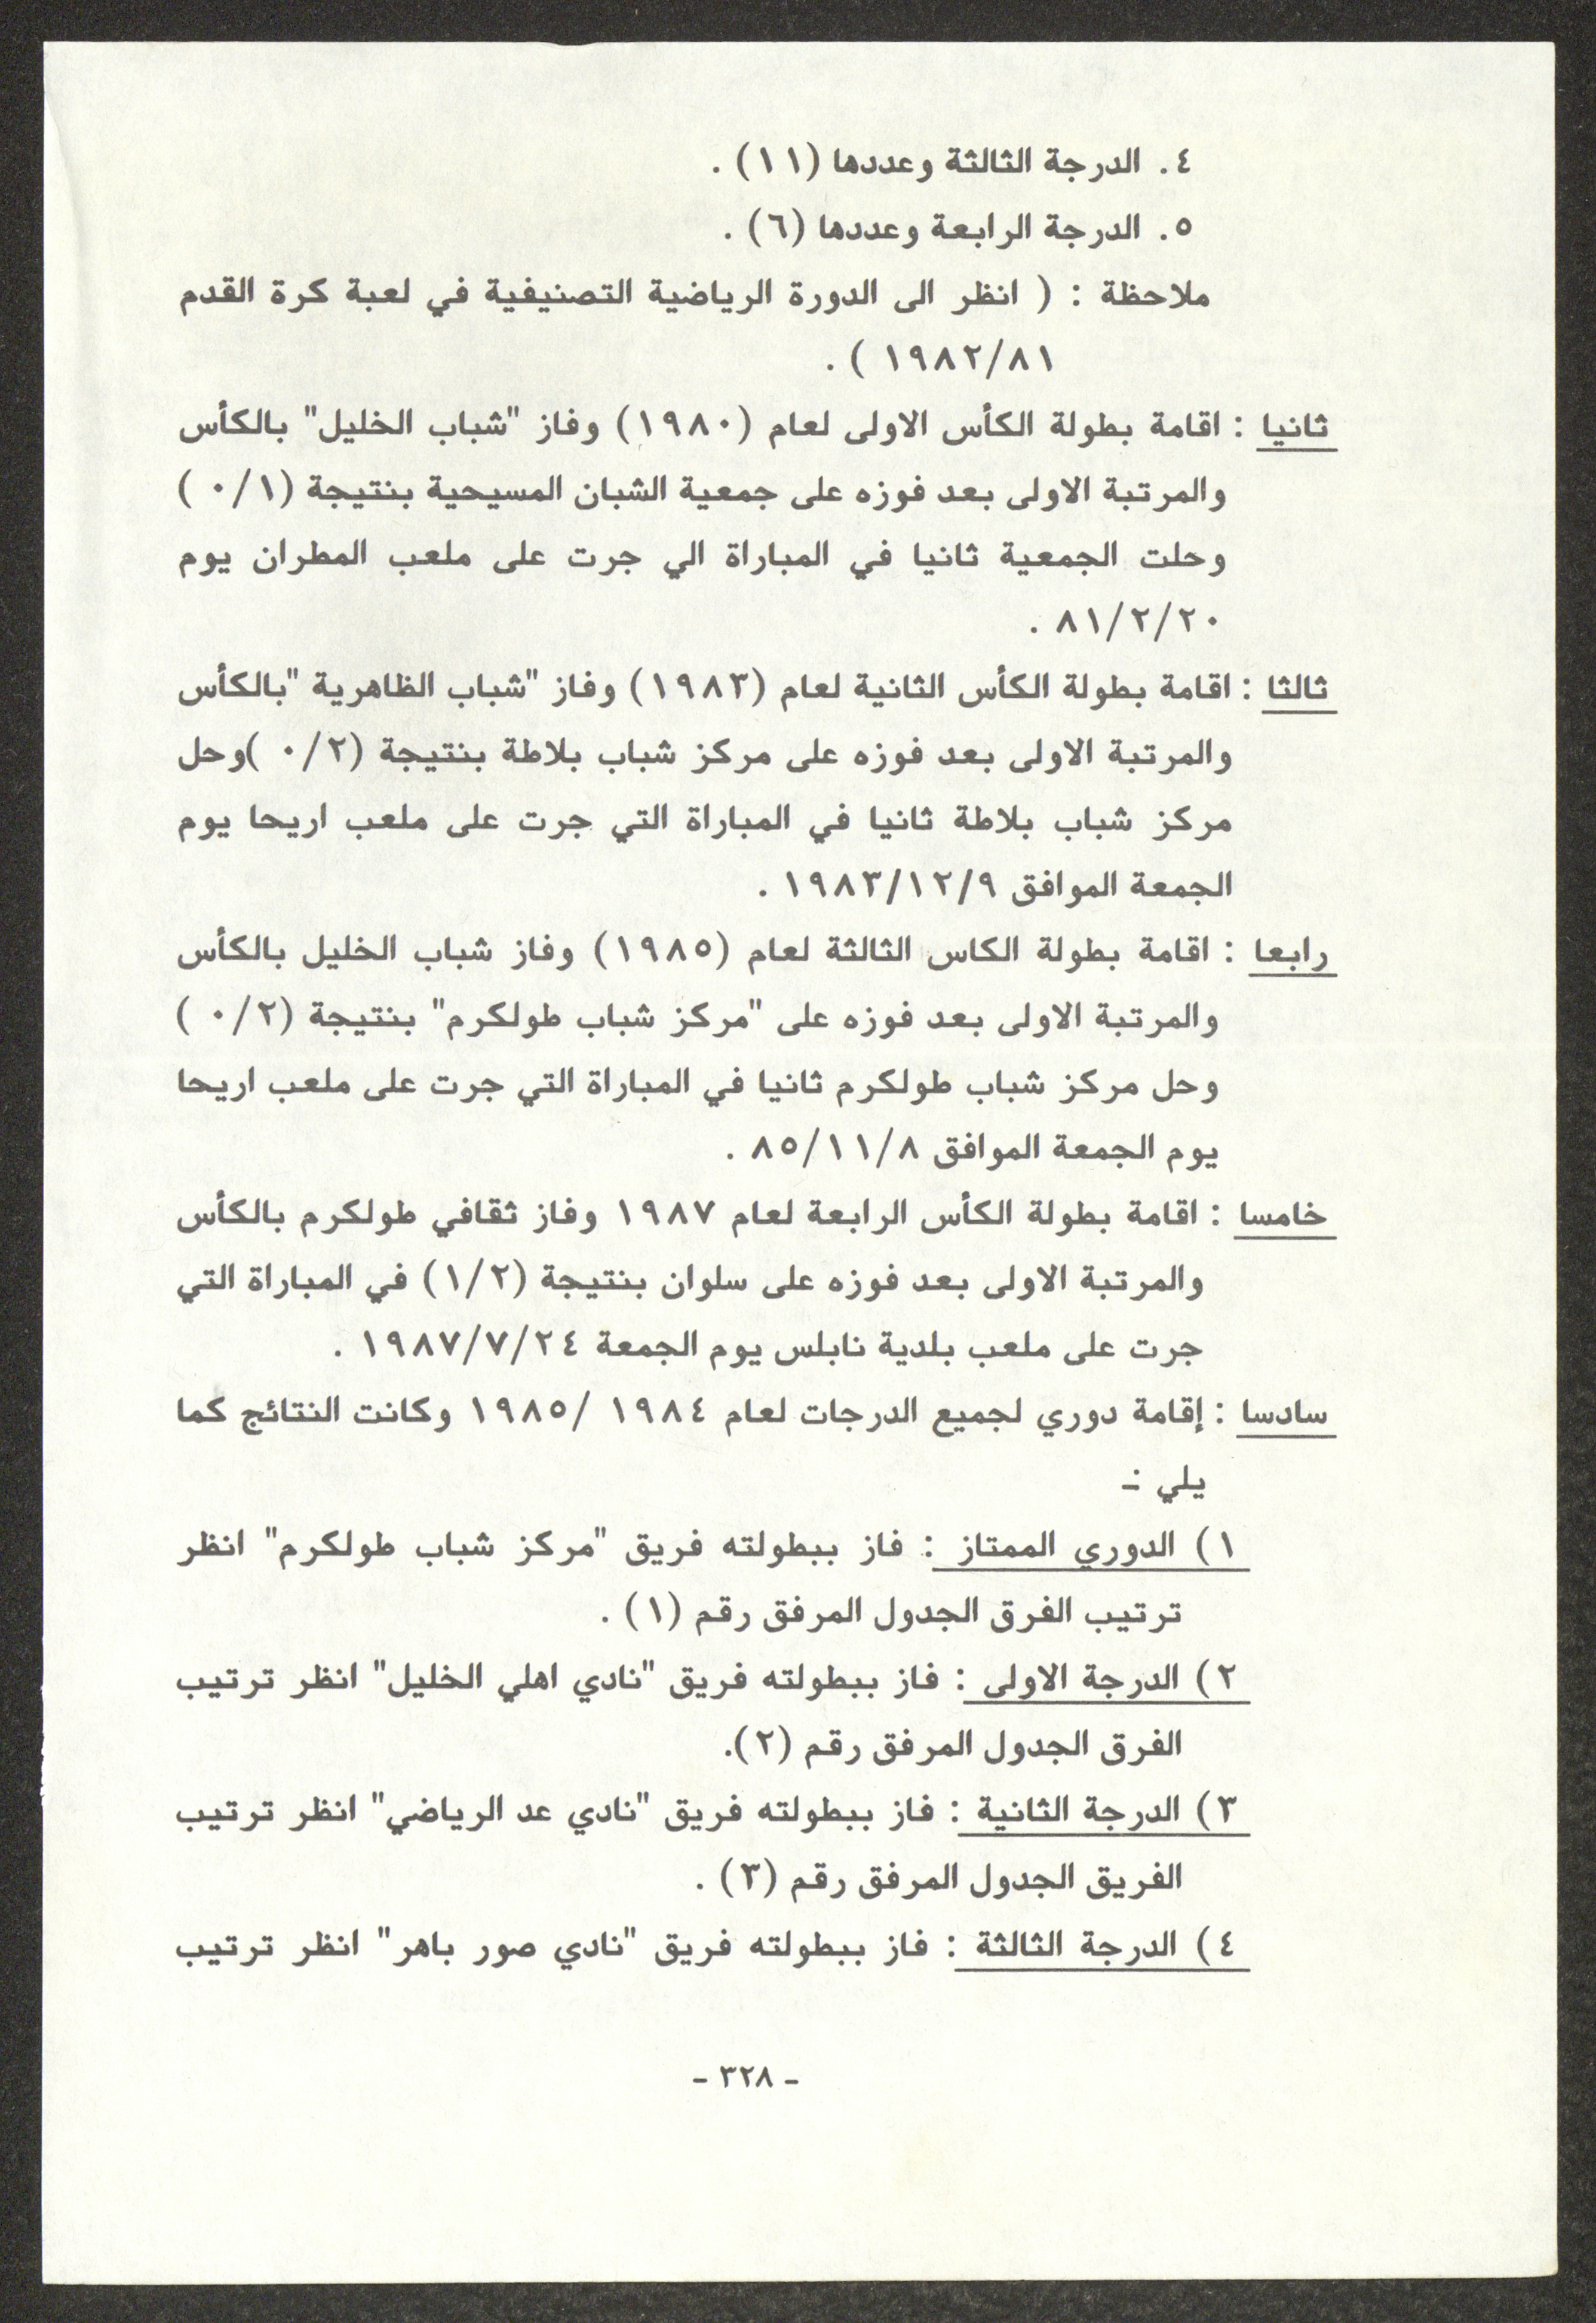 ٤. الدرجة الثالثة وعددها (١١) .
٥. الدرجة الرابعة وعددها (٦) .
ملاحظة : ( انظر الى الدورة الرياضية التصنيفية في لعبة كرة القدم
١٩٨٢/٨١ ) .
ثانيا : اقامة بطولة الكأس الاولى لعام (١٩٨٠) وفاز "شباب الخليل" بالكأس
والمرتبة الاولى بعد فوزه على جمعية الشبان المسيحية بنتيجة (٠/١ )
وحلت الجمعية ثانيا في المباراة الي جرت على ملعب المطران يوم
٨١/٢/٢٠ .
ثالثا : اقامة بطولة الكأس الثانية لعام (١٩٨٣) وفاز "شباب الظاهرية "بالكأس
والمرتبة الاولى بعد فوزه على مركز شباب بلاطة بنتيجة (٠/٢ )وحل
مركز شباب بلاطة ثانيا في المباراة التي جرت على ملعب اريحا يوم
الجمعة الموافق ١٩٨٣/١٢/٩ .
رابعا : اقامة بطولة الكاس الثالثة لعام (١٩٨٥) وفاز شباب الخليل بالكأس
والمرتبة الاولى بعد فوزه على "مركز شباب طولكرم" بنتيجة (٠/٢ )
وحل مركز شباب طولكرم ثانيا في المباراة التي جرت على ملعب اريحا
يوم الجمعة الموافق ٨٥/١١/٨ .
خامسا : اقامة بطولة الكأس الرابعة لعام ١٩٨٧ وفاز ثقافي طولكرم بالكأس
والمرتبة الاولى بعد فوزه على سلوان بنتيجة (١/٢) في المباراة التي
جرت على ملعب بلدية نابلس يوم الجمعة ١٩٨٧/٧/٢٤ .
سادسا : إقامة دوري لجميع الدرجات لعام ١٩٨٤ /١٩٨٥ وكانت النتائج كما
يلي :-
١) الدوري الممتاز : فاز ببطولته فريق "مركز شباب طولكرم" انظر
ترتيب الفرق الجدول المرفق رقم (١) .
٢) الدرجة الاولى : فاز ببطولته فريق "نادي اهلي الخليل" انظر ترتيب
الفرق الجدول المرفق رقم (٢).
٣) الدرجة الثانية : فاز ببطولته فريق "نادي عد الرياضي" انظر ترتيب
الفريق الجدول المرفق رقم (٣) .
٤) الدرجة الثالثة : فاز ببطولته فريق "نادي صور باهر" انظر ترتيب
- ٣٢٨ -